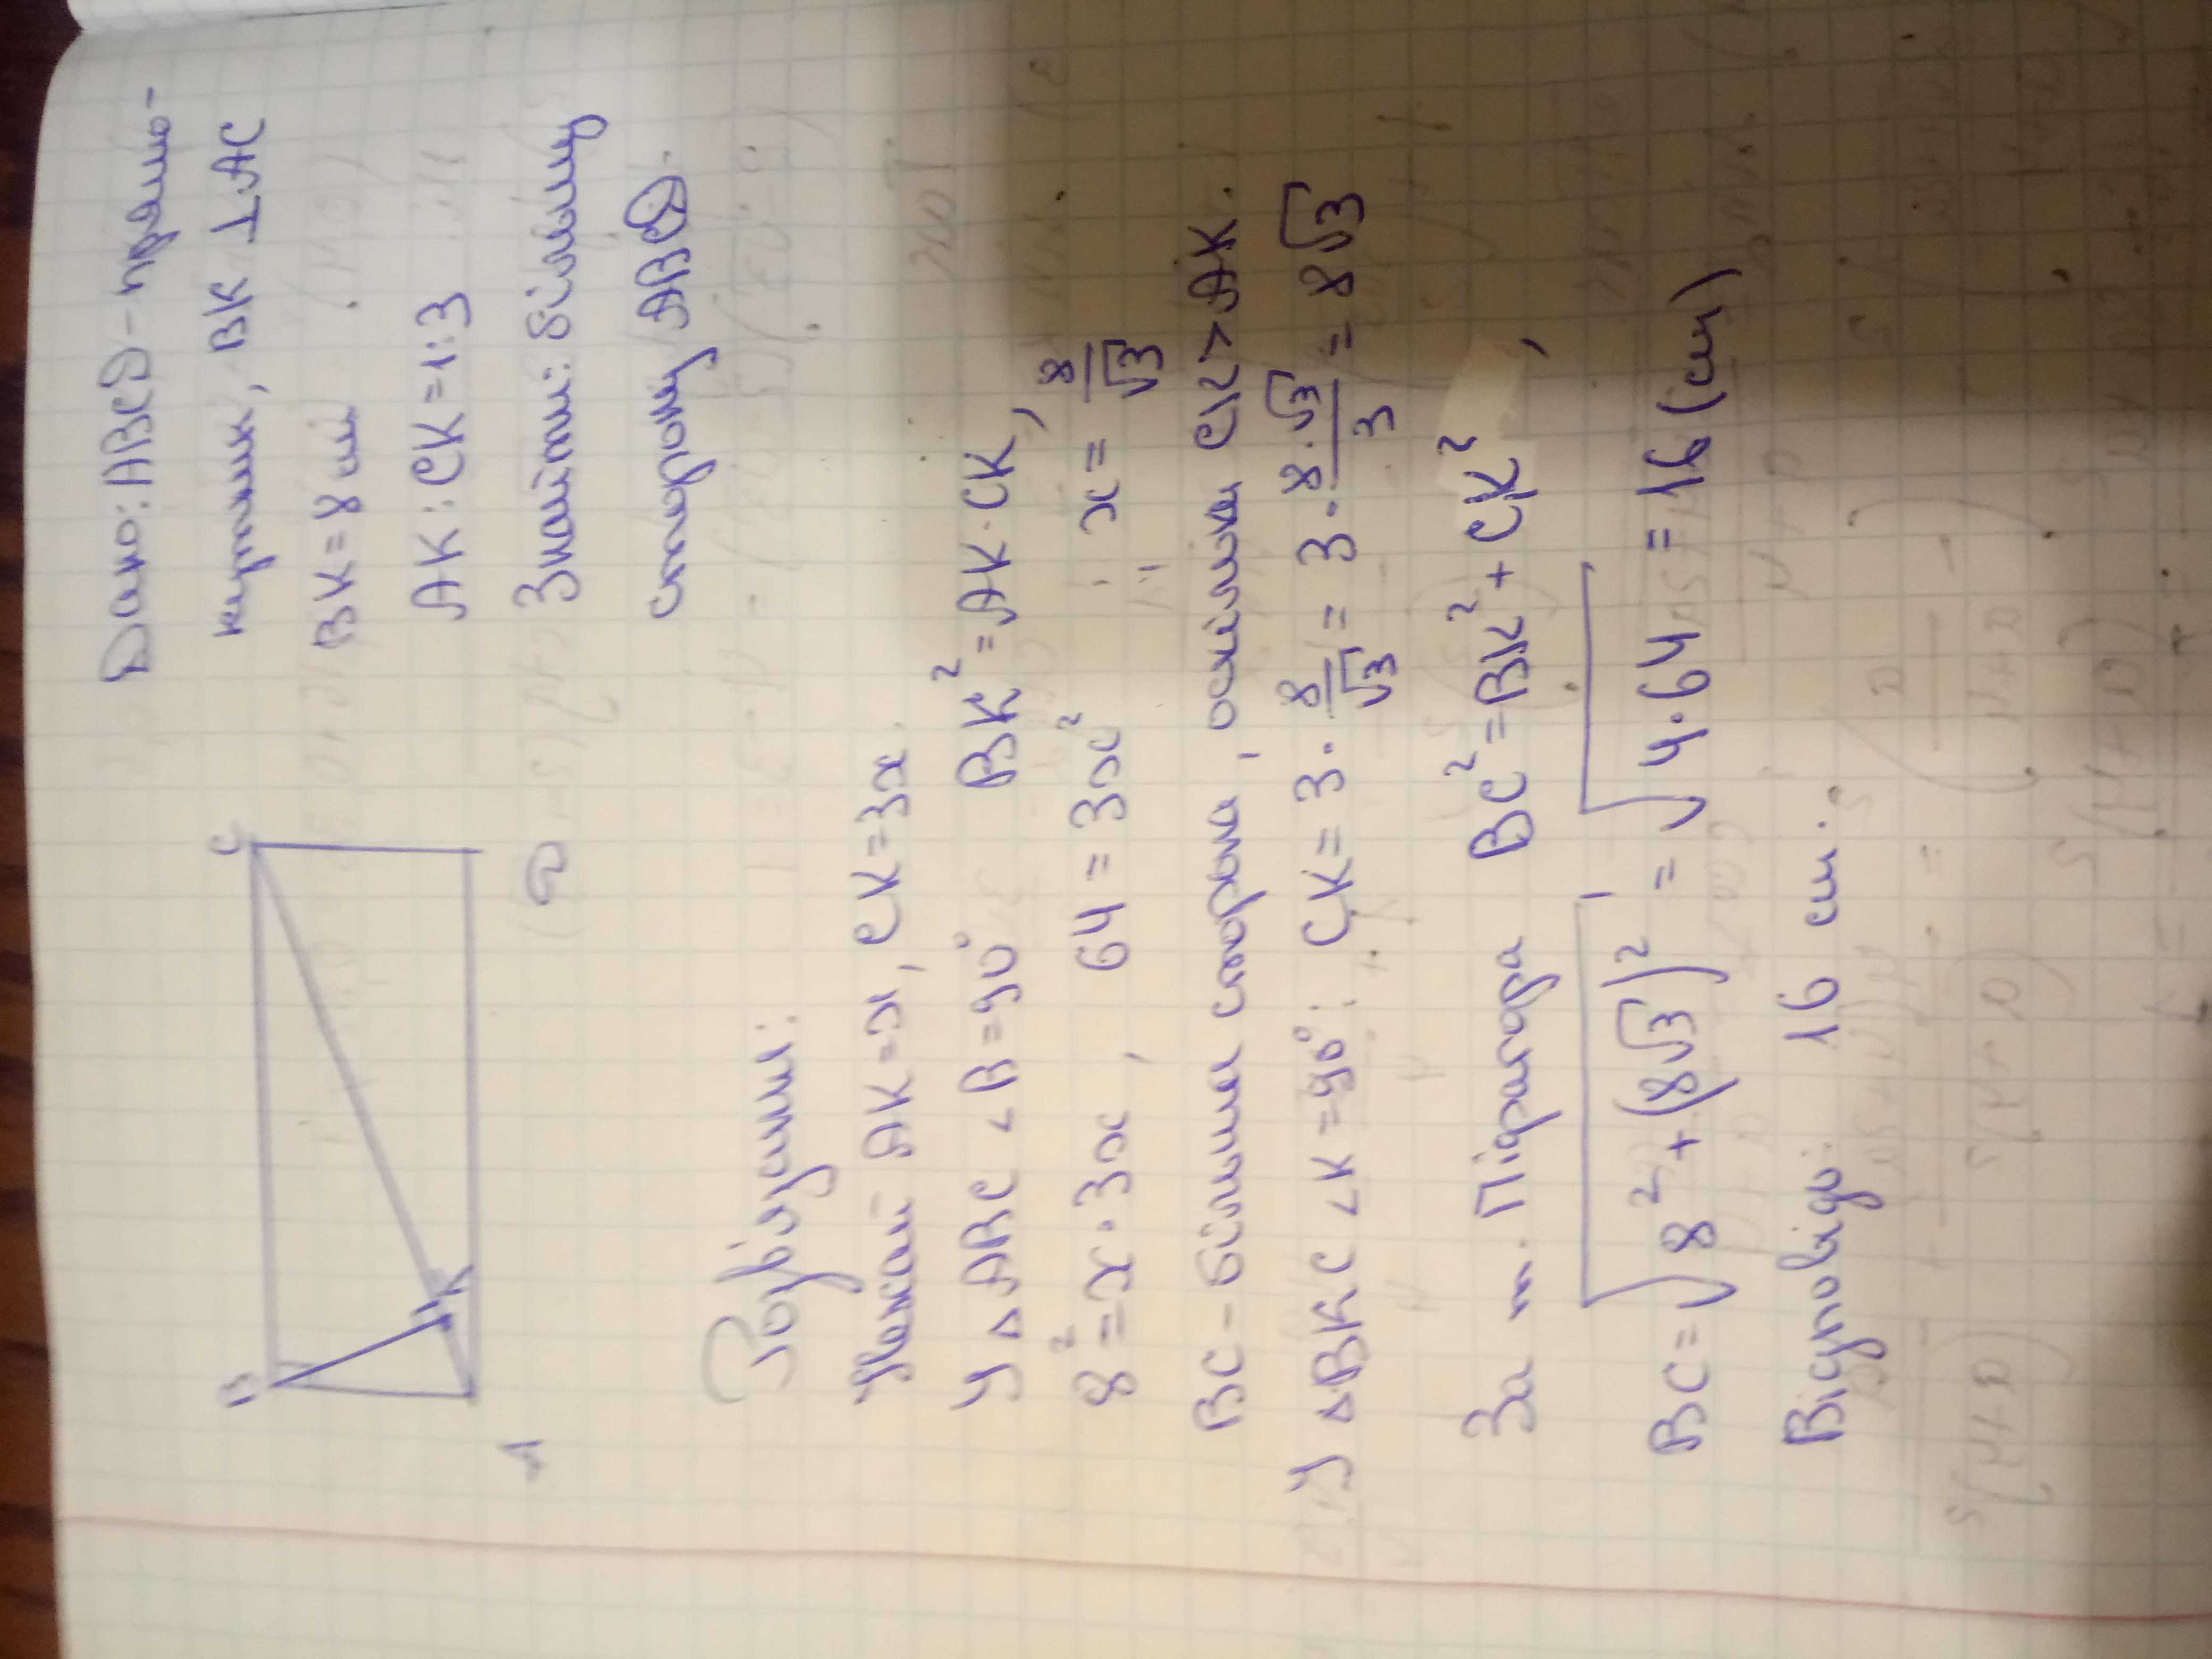 B
C
K
A
D
Дано: ABCD - прямо-
кутник, BK ⊥ AC
BK = 8 см
AK : CK = 1:3
Знайти: більшу
сторону ABCD.
Розв'язання:
Нехай AK = x, CK = 3x.
У △ABC ∠B = 90° BK² = AK · CK,
8² = x · 3x, 64 = 3x² ; x = 8/√3
BC - більша сторона, оскільки CK > AK.
У △BKC ∠K = 90°: CK = 3 · 8/√3 = 3 · 8·√3/3 = 8√3
За т. Піфагора BC² = BK² + CK²,
BC = √8² + (8√3)² = √4·64 = 16 (см)
Відповідь: 16 см.